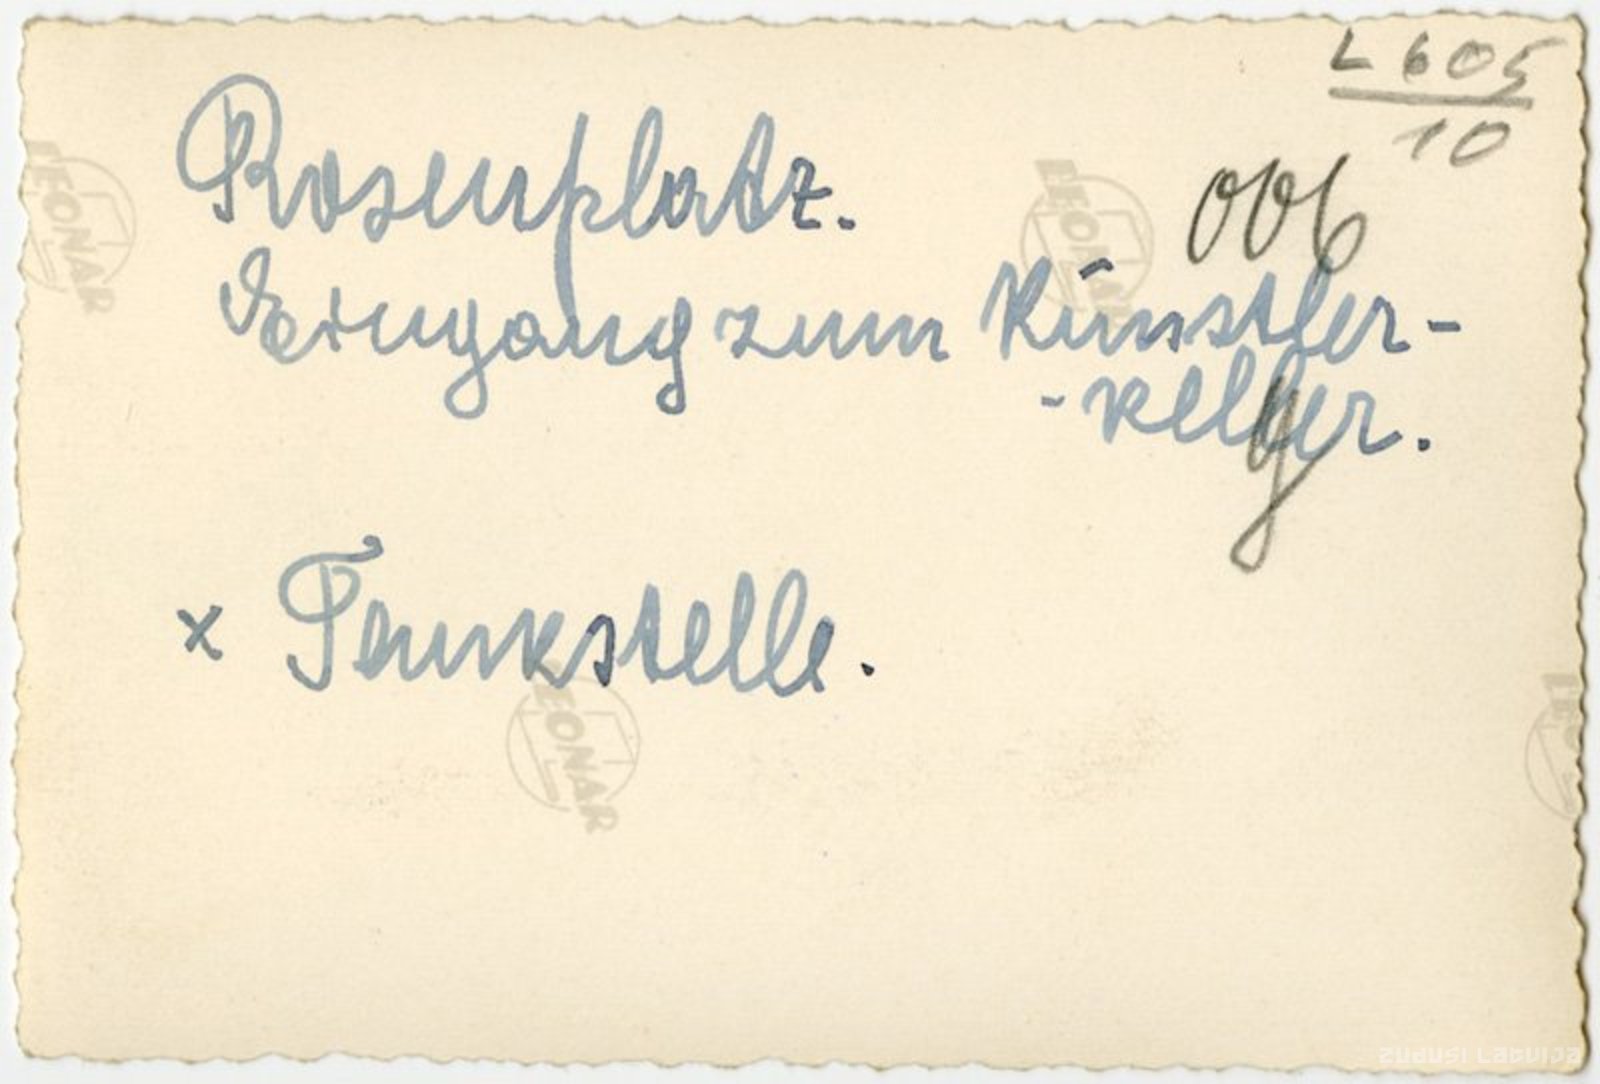 L 605
10
006
Rosenplatz.
Eingang zum Künstler-
-keller.
x Tankstelle.
LEONAR
LEONAR
LEONAR
zudusi Latvija